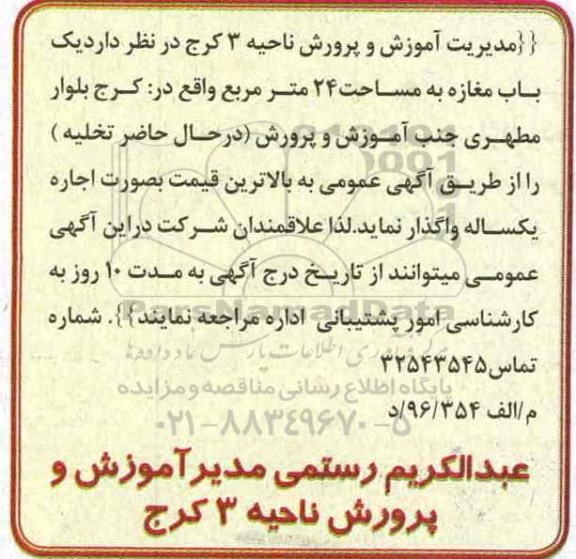 {{مدیریت آموزش و پرورش ناحیه ۳ کرج در نظر داردیک
باب مغازه به مساحت۲۴ متر مربع واقع در: کرج بلوار
مطهری جنب آموزش و پرورش (درحال حاضر تخلیه )
را از طریق آگهی عمومی به بالاترین قیمت بصورت اجاره
یکساله واگذار نماید.لذا علاقمندان شرکت دراین آگهی
عمومی میتوانند از تاریخ درج آگهی به مدت ۱۰ روز به
ParsNamadData
کارشناسی امور پشتیبانی اداره مراجعه نمایند}}. شماره
تماس۳۲۵۴۳۵۴۵
پایگاه اطلاع رسانی مناقصه و مزایده
م/الف ۹۶/۳۵۴/د
۰۲۱-۸۸۳۴۹۶۷۰-۵
عبدالکریم رستمی مدیرآموزش و
پرورش ناحیه ۳ کرج